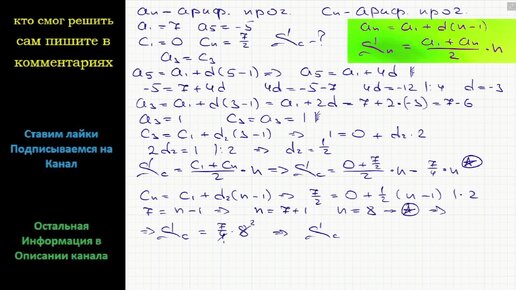 кто смог решить
сам пишите в
комментариях
Ставим лайки
Подписываемся на
Канал
Остальная
Информация в
Описании канала
aₙ - ариф. прог. Cₙ - ариф. прог.
a₁ = 7 a₅ = -5
C₁ = 0 Cₙ = 7/2 S_c - ?
a₃ = C₃
aₙ = a₁ + d(n-1)
Sₙ = (a₁ + aₙ)/2 · n
a₅ = a₁ + d(5-1) => a₅ = a₁ + 4d
-5 = 7 + 4d 4d = -5 - 7 4d = -12 |:4 d = -3
a₃ = a₁ + d(3-1) = a₁ + 2d = 7 + 2·(-3) = 7 - 6
a₃ = 1 C₃ = a₃ = 1
C₃ = C₁ + d₂(3-1) => 1 = 0 + d₂·2
2d₂ = 1 |:2 => d₂ = 1/2
S_c = (C₁ + Cₙ)/2 · n => S_c = (0 + 7/2)/2 · n = 7/4 · n
Cₙ = C₁ + d₂(n-1) => 7/2 = 0 + 1/2 (n-1) |·2
7 = n - 1 => n = 7 + 1 n = 8 → =>
=> S_c = 7/4 · 8² => S_c